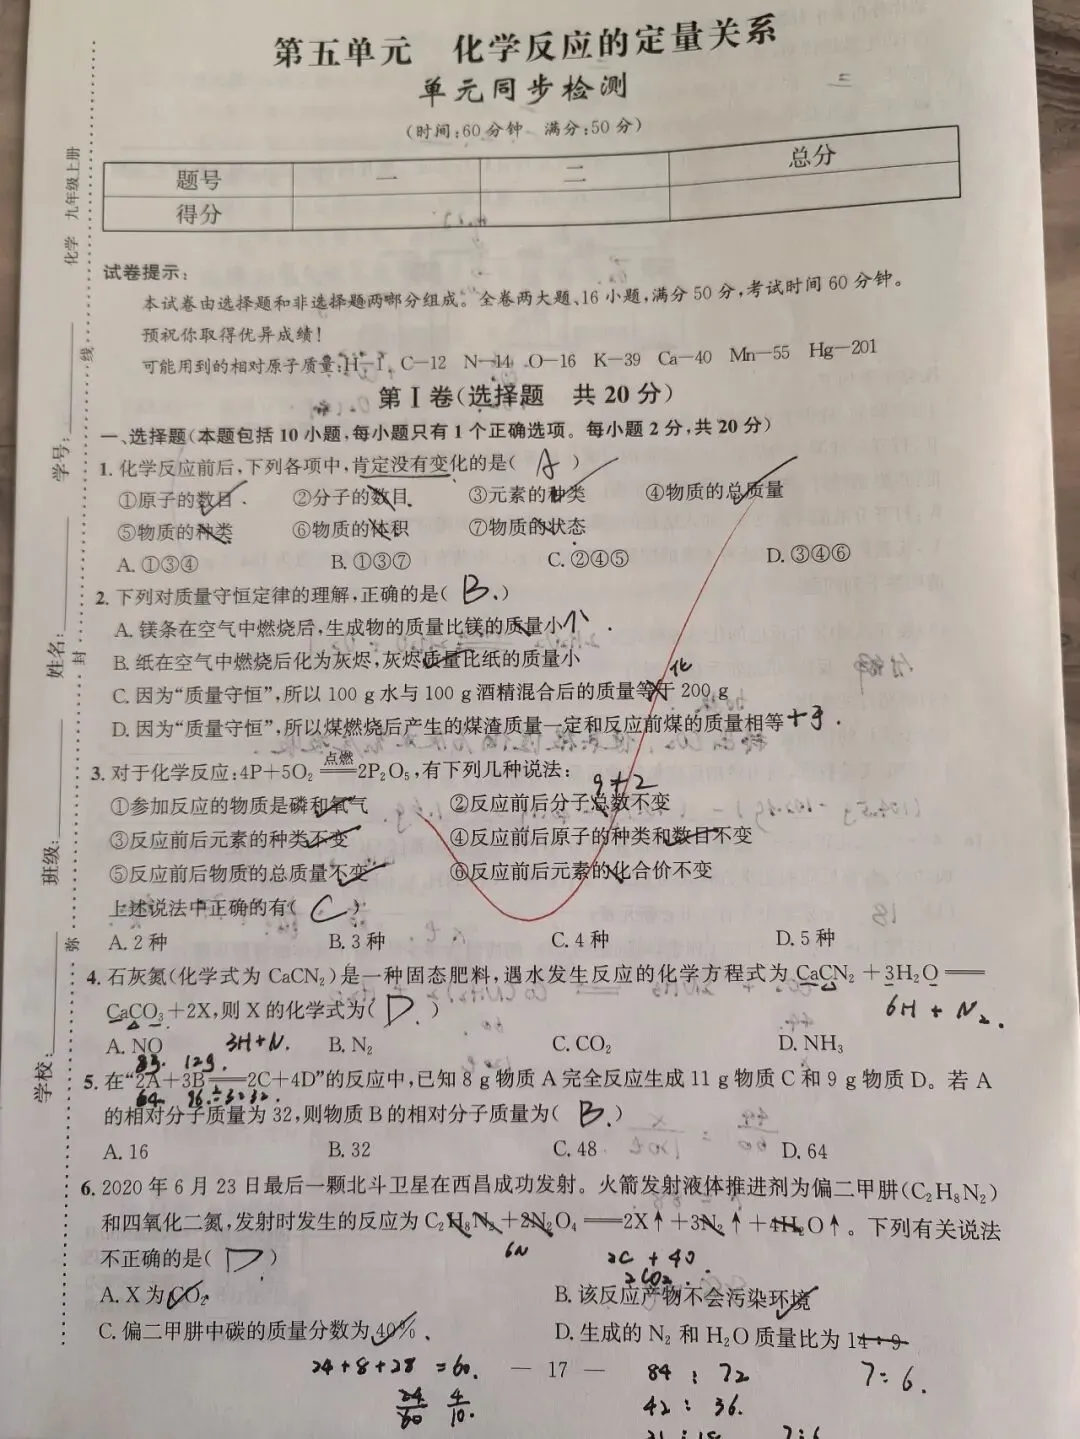 第五单元 化学反应的定量关系
单元同步检测
(时间:60分钟 满分:50分)
题号 一 二 总分
得分
化学 九年级上册
学号:
姓名:
班级:
学校:
线
封
弥
试卷提示:
本试卷由选择题和非选择题两部分组成。全卷两大题、16小题,满分50分,考试时间60分钟。
预祝你取得优异成绩!
可能用到的相对原子质量:H—1 C—12 N—14 O—16 K—39 Ca—40 Mn—55 Hg—201
第Ⅰ卷(选择题 共20分)
一、选择题(本题包括10小题,每小题只有1个正确选项。每小题2分,共20分)
1. 化学反应前后,下列各项中,肯定没有变化的是( A )
①原子的数目 ②分子的数目 ③元素的种类 ④物质的总质量
⑤物质的种类 ⑥物质的体积 ⑦物质的状态
A. ①③④ B. ①③⑦ C. ②④⑤ D. ③④⑥
2. 下列对质量守恒定律的理解,正确的是( B )
A. 镁条在空气中燃烧后,生成物的质量比镁的质量小
B. 纸在空气中燃烧后化为灰烬,灰烬质量比纸的质量小
化
C. 因为“质量守恒”,所以100 g水与100 g酒精混合后的质量等于200 g
D. 因为“质量守恒”,所以煤燃烧后产生的煤渣质量一定和反应前煤的质量相等
3. 对于化学反应:4P+5O₂ 点燃══ 2P₂O₅,有下列几种说法:
9≠2
①参加反应的物质是磷和氧气 ②反应前后分子总数不变
③反应前后元素的种类不变 ④反应前后原子的种类和数目不变
⑤反应前后物质的总质量不变 ⑥反应前后元素的化合价不变
上述说法中正确的有( C )
A. 2种 B. 3种 C. 4种 D. 5种
4. 石灰氮(化学式为CaCN₂)是一种固态肥料,遇水发生反应的化学方程式为CaCN₂+3H₂O══
CaCO₃+2X,则X的化学式为( D ) 6H + N₂.
A. NO 3H+N. B. N₂ C. CO₂ D. NH₃
8g. 12g.
5. 在“2A+3B══2C+4D”的反应中,已知8 g物质A完全反应生成11 g物质C和9 g物质D。若A
64. 96.÷3=32.
的相对分子质量为32,则物质B的相对分子质量为( B )
A. 16 B. 32 C. 48 D. 64
6. 2020年6月23日最后一颗北斗卫星在西昌成功发射。火箭发射液体推进剂为偏二甲肼(C₂H₈N₂)
和四氧化二氮,发射时发生的反应为C₂H₈N₂+2N₂O₄══2X↑+3N₂↑+4H₂O↑。下列有关说法
6N 2C + 4O
不正确的是( D )
2CO₂.
A. X为CO₂ B. 该反应产物不会污染环境
C. 偏二甲肼中碳的质量分数为40% D. 生成的N₂和H₂O质量比为14:9
24+8+28=60. — 17 — 84 : 72 7:6.
24/60 4/10. 42 : 36.
21:18 7:6